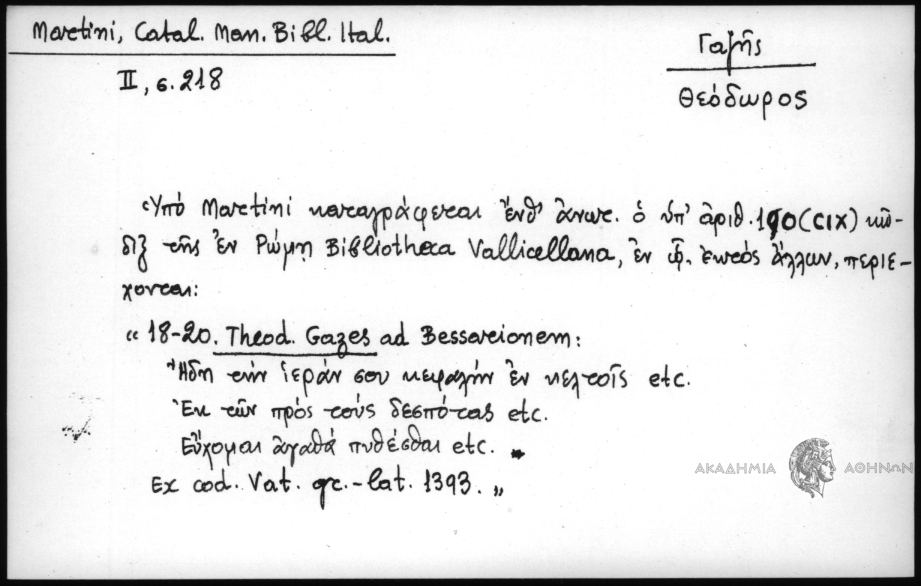 Martini, Catal. Man. Bibl. Ital.
II, σ. 218
Γαζῆς
Θεόδωρος
Ὑπό Martini καταγράφεται ἔνθ' ἄνωτ. ὁ ὑπ' ἀριθ. 190 (CIX) κῶ-
διξ τῆς ἐν Ρώμῃ Bibliotheca Vallicellana, ἐν ᾧ, ἐκτός ἄλλων, περιέ-
χονται:
" 18-20. Theod. Gazes ad Bessarionem:
Ἤδη τήν ἱεράν σου κεφαλήν ἐν κελτοῖς etc.
Ἐκ τῶν πρός τούς δεσπότας etc.
Εὔχομαι ἀγαθά πυθέσθαι etc.
Ex cod. Vat. gr.-lat. 1393. "
ΑΚΑΔΗΜΙΑ ΑΘΗΝΩΝ